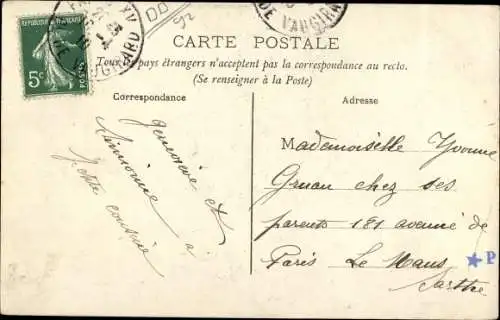 PARIS XV
RUE DE VAUGIRARD
REPUBLIQUE FRANÇAISE
5c
POSTES
DE VAUGIRARD
92
CARTE POSTALE
Tous les pays étrangers n'acceptent pas la correspondance au recto.
(Se renseigner à la Poste)
Correspondance
Adresse
Geneviève et
Simonne à
Notre cousine
Mademoiselle Yvonne
Gruau chez ses
parents 181 avenue de
Paris Le Mans
Sarthe
P